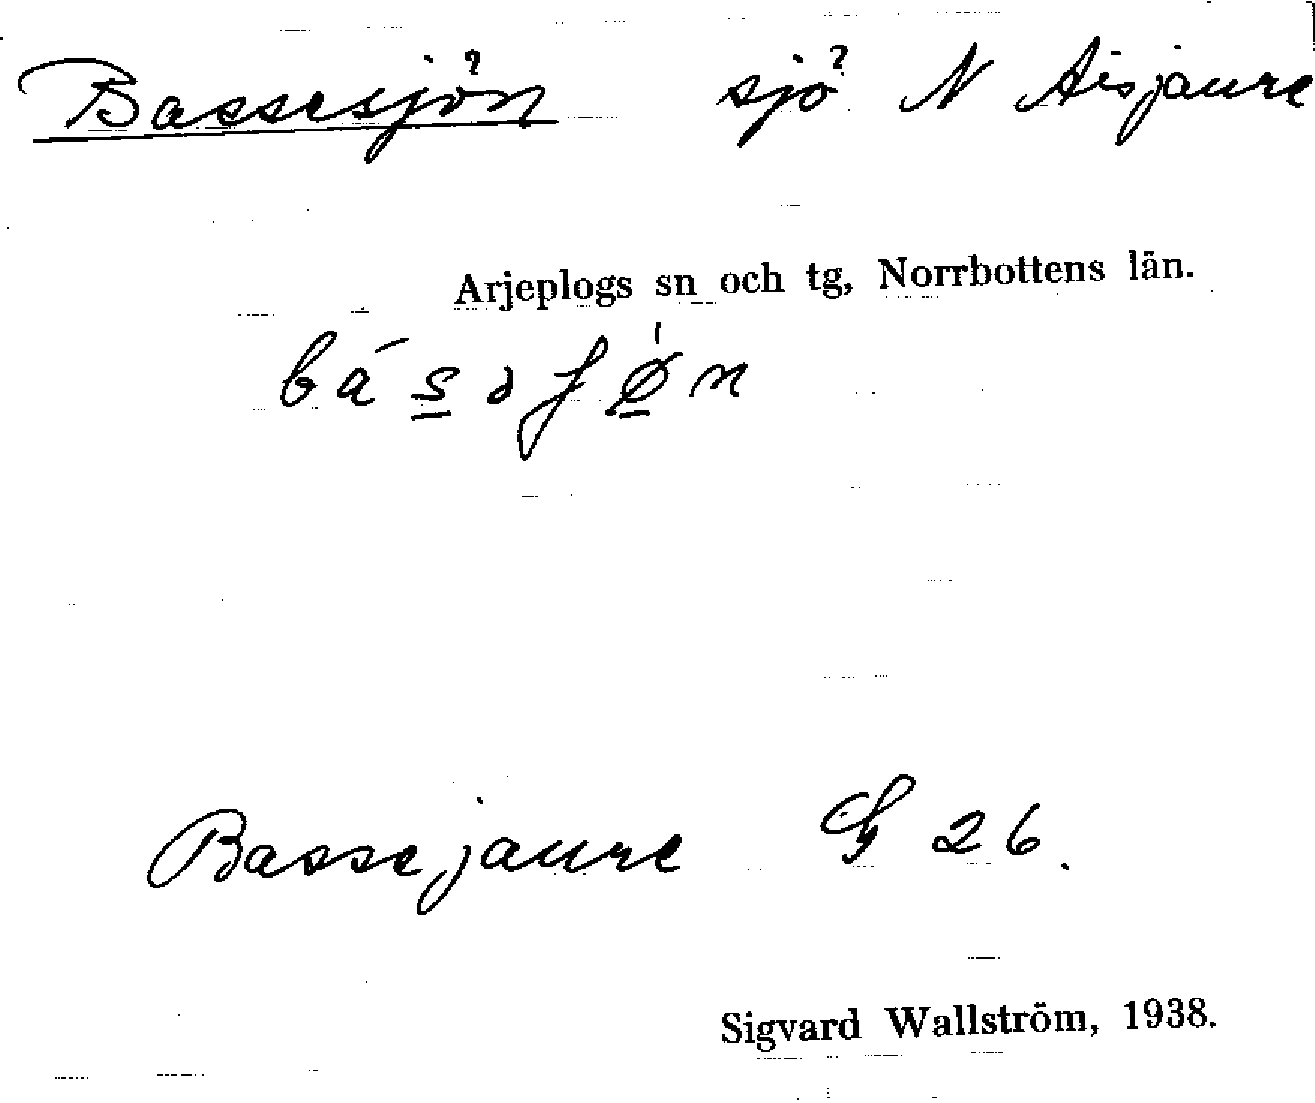 Bassesjön sjö N Aisjaure
Arjeplogs sn och tg, Norrbottens län.
Bassejaure 26.
Sigvard Wallström, 1938.